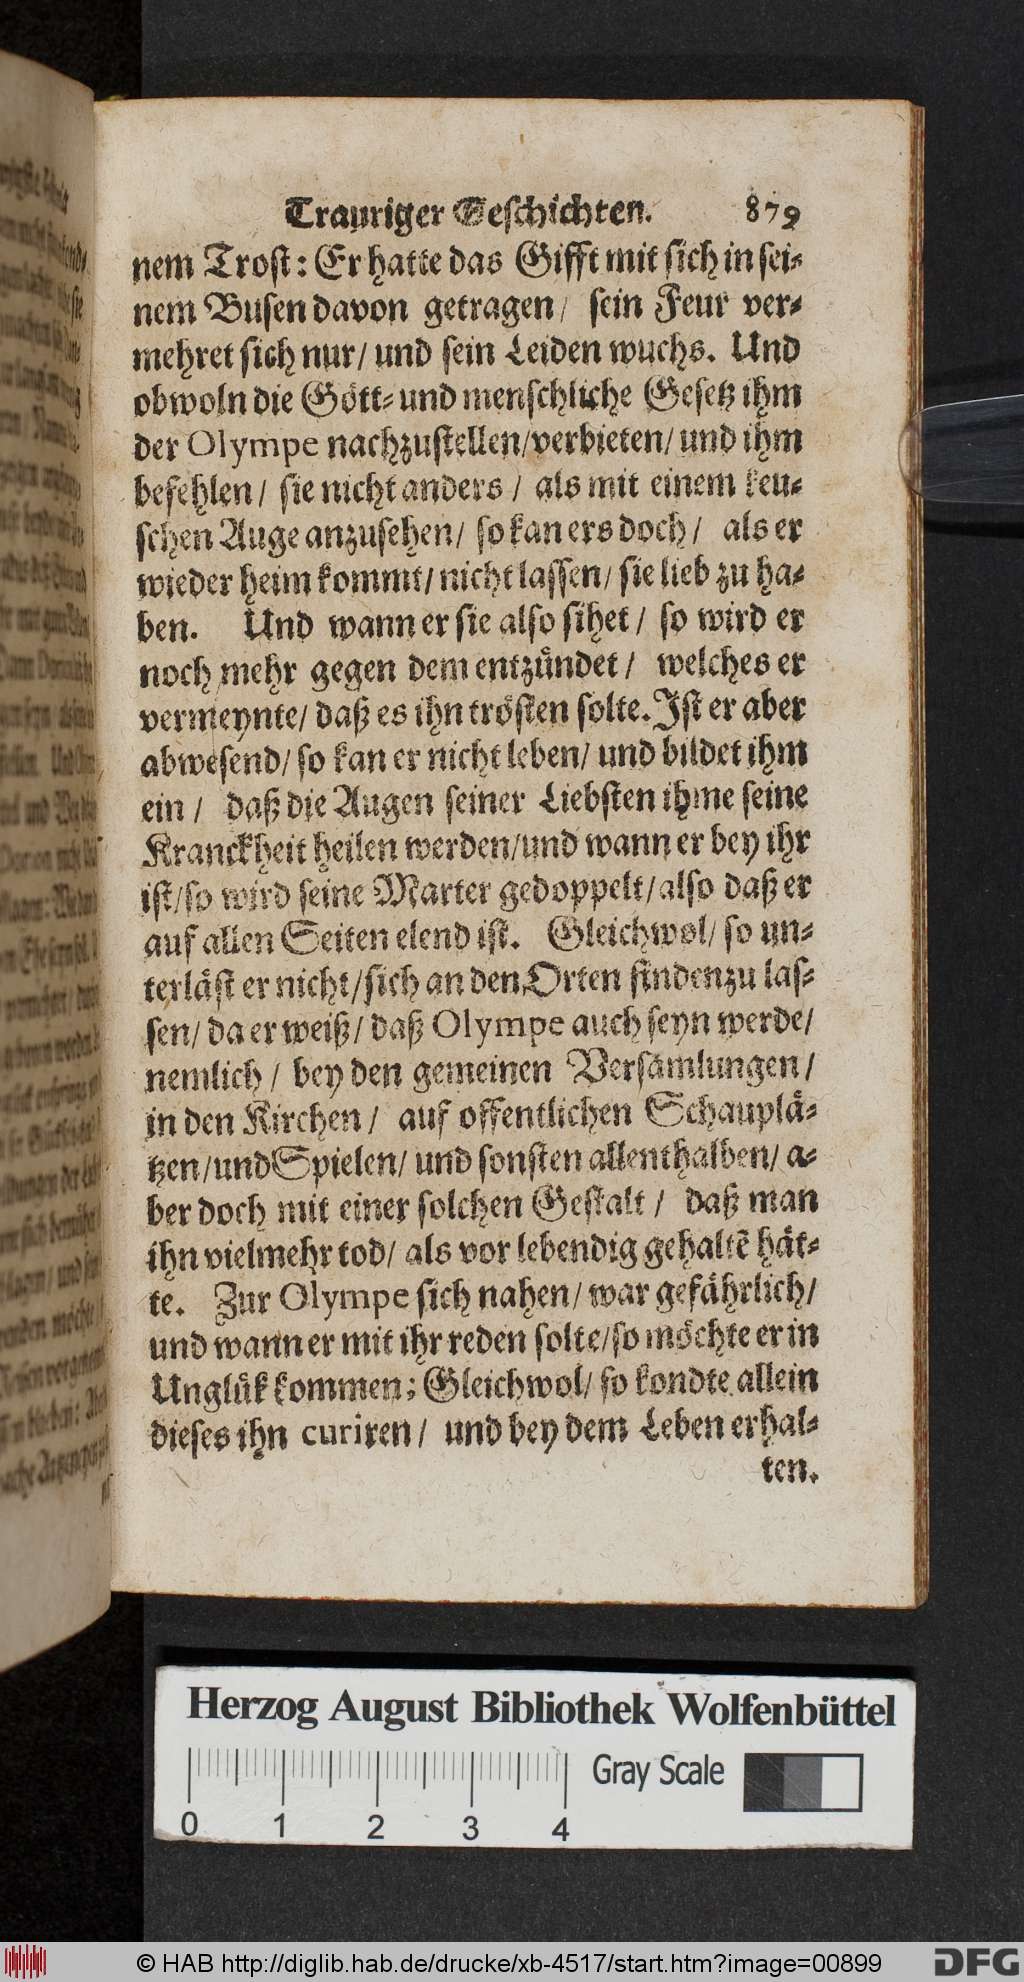 Trauriger Geschichten. 879
nem Trost: Er hatte das Gifft mit sich in sei-
nem Busen davon getragen / sein Feur ver-
mehret sich nur / und sein Leiden wuchs. Und
obwoln die Gött- und menschliche Gesetz ihm
der Olympe nachzustellen / verbieten / und ihm
befehlen / sie nicht anders / als mit einem keu-
schen Auge anzusehen / so kan ers doch / als er
wieder heim kommt / nicht lassen / sie lieb zu ha-
ben. Und wann er sie also sihet / so wird er
noch mehr gegen dem entzündet / welches er
vermeynte / daß es ihn trösten solte. Ist er aber
abwesend / so kan er nicht leben / und bildet ihm
ein / daß die Augen seiner Liebsten ihme seine
Kranckheit heilen werden / und wann er bey ihr
ist / so wird seine Marter gedoppelt / also daß er
auf allen Seiten elend ist. Gleichwol / so un-
terläst er nicht / sich an den Orten finden zu las-
sen / da er weiß / daß Olympe auch seyn werde /
nemlich / bey den gemeinen Versamlungen /
in den Kirchen / auf offentlichen Schauplä-
tzen / und Spielen / und sonsten allenthalben / a-
ber doch mit einer solchen Gestalt / daß man
ihn vielmehr tod / als vor lebendig gehaltẽ hät-
te. Zur Olympe sich nahen / war gefährlich /
und wann er mit ihr reden solte / so möchte er in
Unglük kommen; Gleichwol / so kondte allein
dieses ihn curiren / und bey dem Leben erhal-
ten.
Herzog August Bibliothek Wolfenbüttel
Gray Scale
0 1 2 3 4
© HAB http://diglib.hab.de/drucke/xb-4517/start.htm?image=00899
DFG